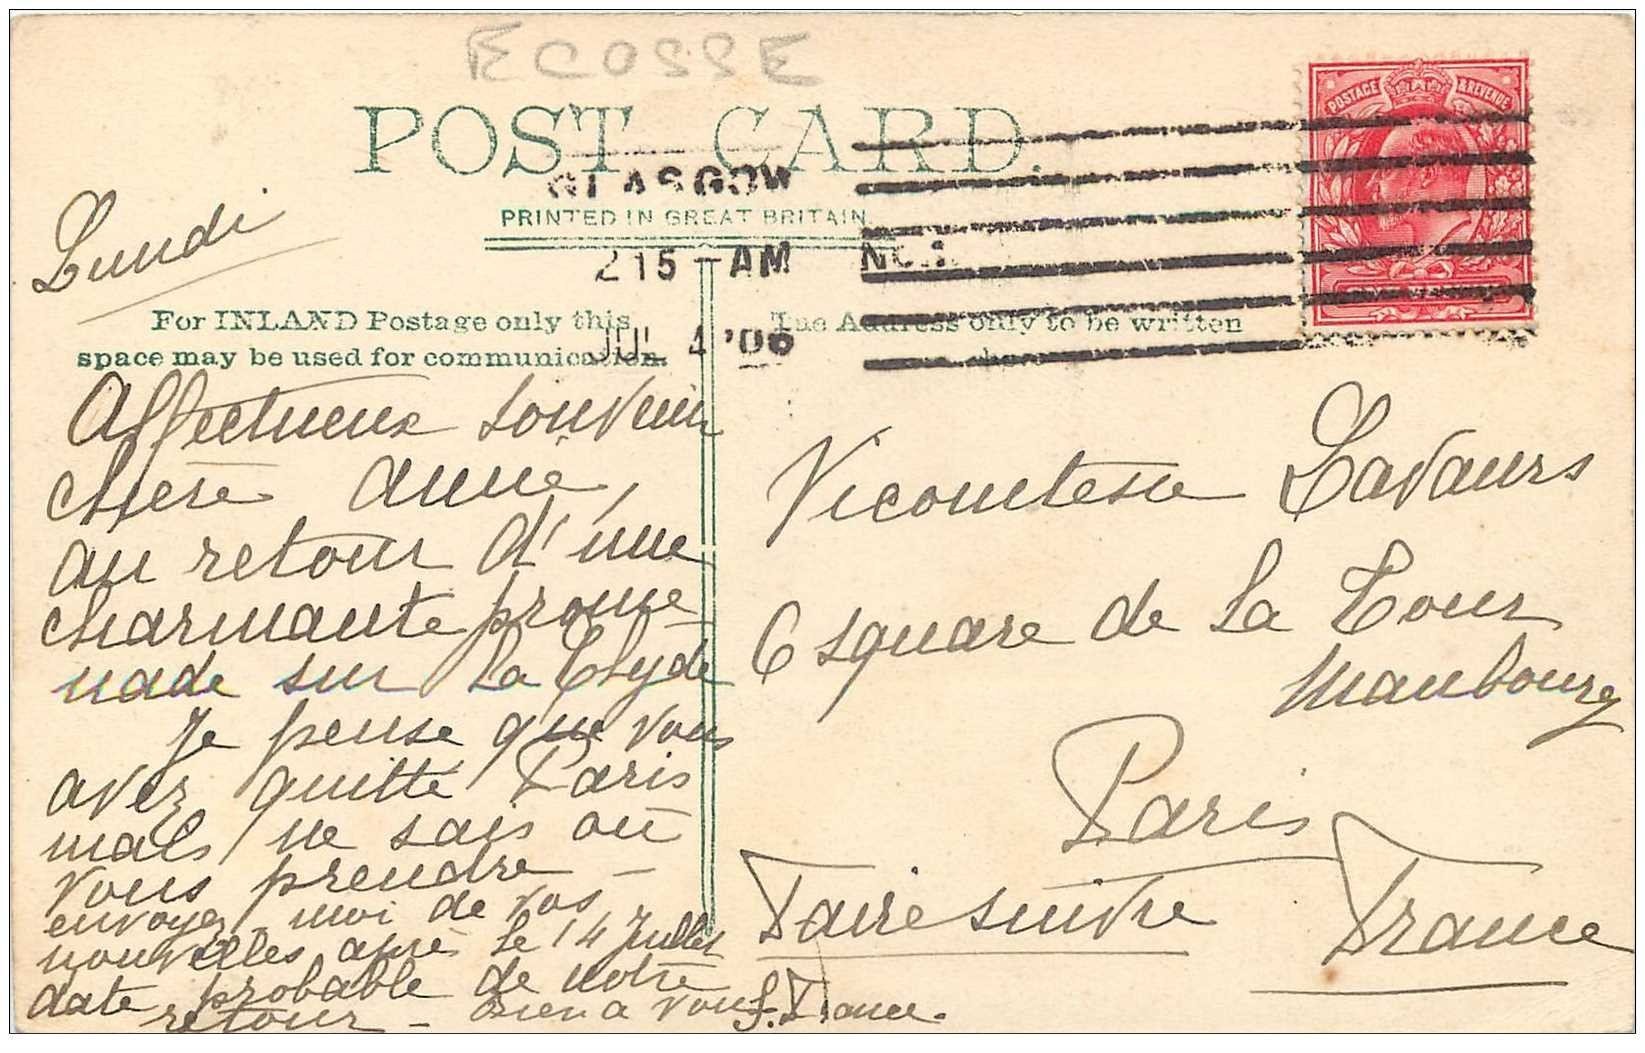 ECOSSE
POST CARD.
GLASGOW
PRINTED IN GREAT BRITAIN.
2 15 - AM NO.1
JUL 4 '06
POSTAGE & REVENUE
Lundi
For INLAND Postage only this
space may be used for communication.
The Address only to be written
here.
Affectueux souvenir
chère Annie,
au retour d'une
charmante prome-
nade sur la Clyde
Je pense que vous
avez quitté Paris
mais ne sais où
vous prendre -
envoyez-moi de vos
nouvelles après le 14 Juillet
date probable de notre
retour - Bien à vous
J. France.
Vicomtesse Lavaurs
6 square de La Tour
Maubourg
Paris
Faire suivre
France